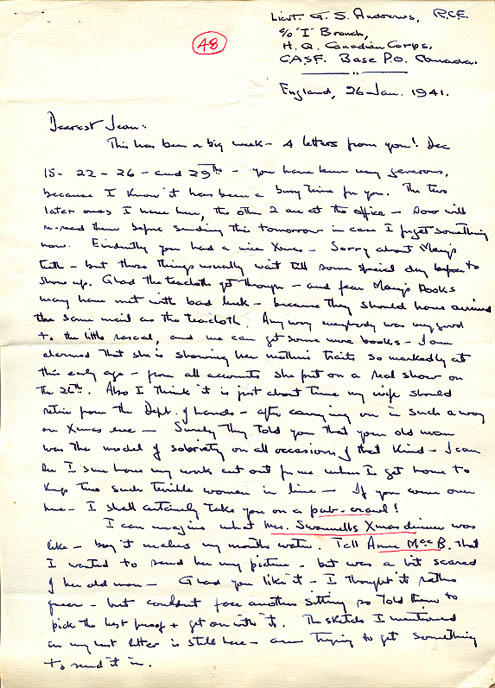 Lieut. G. S. Andrews, R.C.E.
c/o "I" Branch,
H.Q. Canadian Corps,
CASF. Base P.O. Canada.
48
England, 26 Jan. 1941.
Dearest Jean:
This has been a big week - 4 letters from you! Dec
15 - 22 - 26 - and 29th - you have been very generous,
because I know it has been a busy time for you. The two
later ones I have here, the other 2 are at the office - so will
re-read them before sending this tomorrow in case I forget something
now. Evidently you had a nice Xmas - Sorry about Mary's
teeth - but those things usually wait till some special day before to
show up. Glad the teacloth got through - and fear Mary's books
may have met with bad luck - because they should have arrived
the same mail as the teacloth. Anyway everybody was very good
to the little rascal, and we can get some more books - I am
alarmed that she is showing her mother's traits so markedly at
this early age - from all accounts she put on a real show on
the 26th. Also I think it is just about time my wife should
retire from the Dept. of Lands - after carrying on in such a way
on Xmas eve - Surely they told you that your old man
was the model of sobriety on all occasions of that kind - I can
see I shall have my work cut out for me when I get home to
keep two such terrible women in line - If you come over
here - I shall certainly take you on a pub-crawl!
I can imagine what Mrs. Swannells Xmas dinner was
like - boy it makes my mouth water. Tell Anne MacB. that
I wanted to send her my picture - but was a bit scared
of her old man - Glad you like it - I thought it rather
queer - but couldnt face another sitting so told them to
pick the best proof + get on with it. The sketch I mentioned
in my last letter is still here - am trying to get something
to send it in.